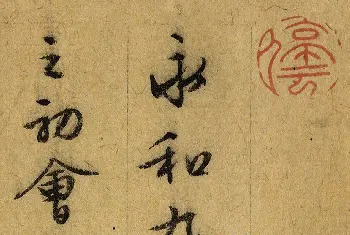 永和九
之初會